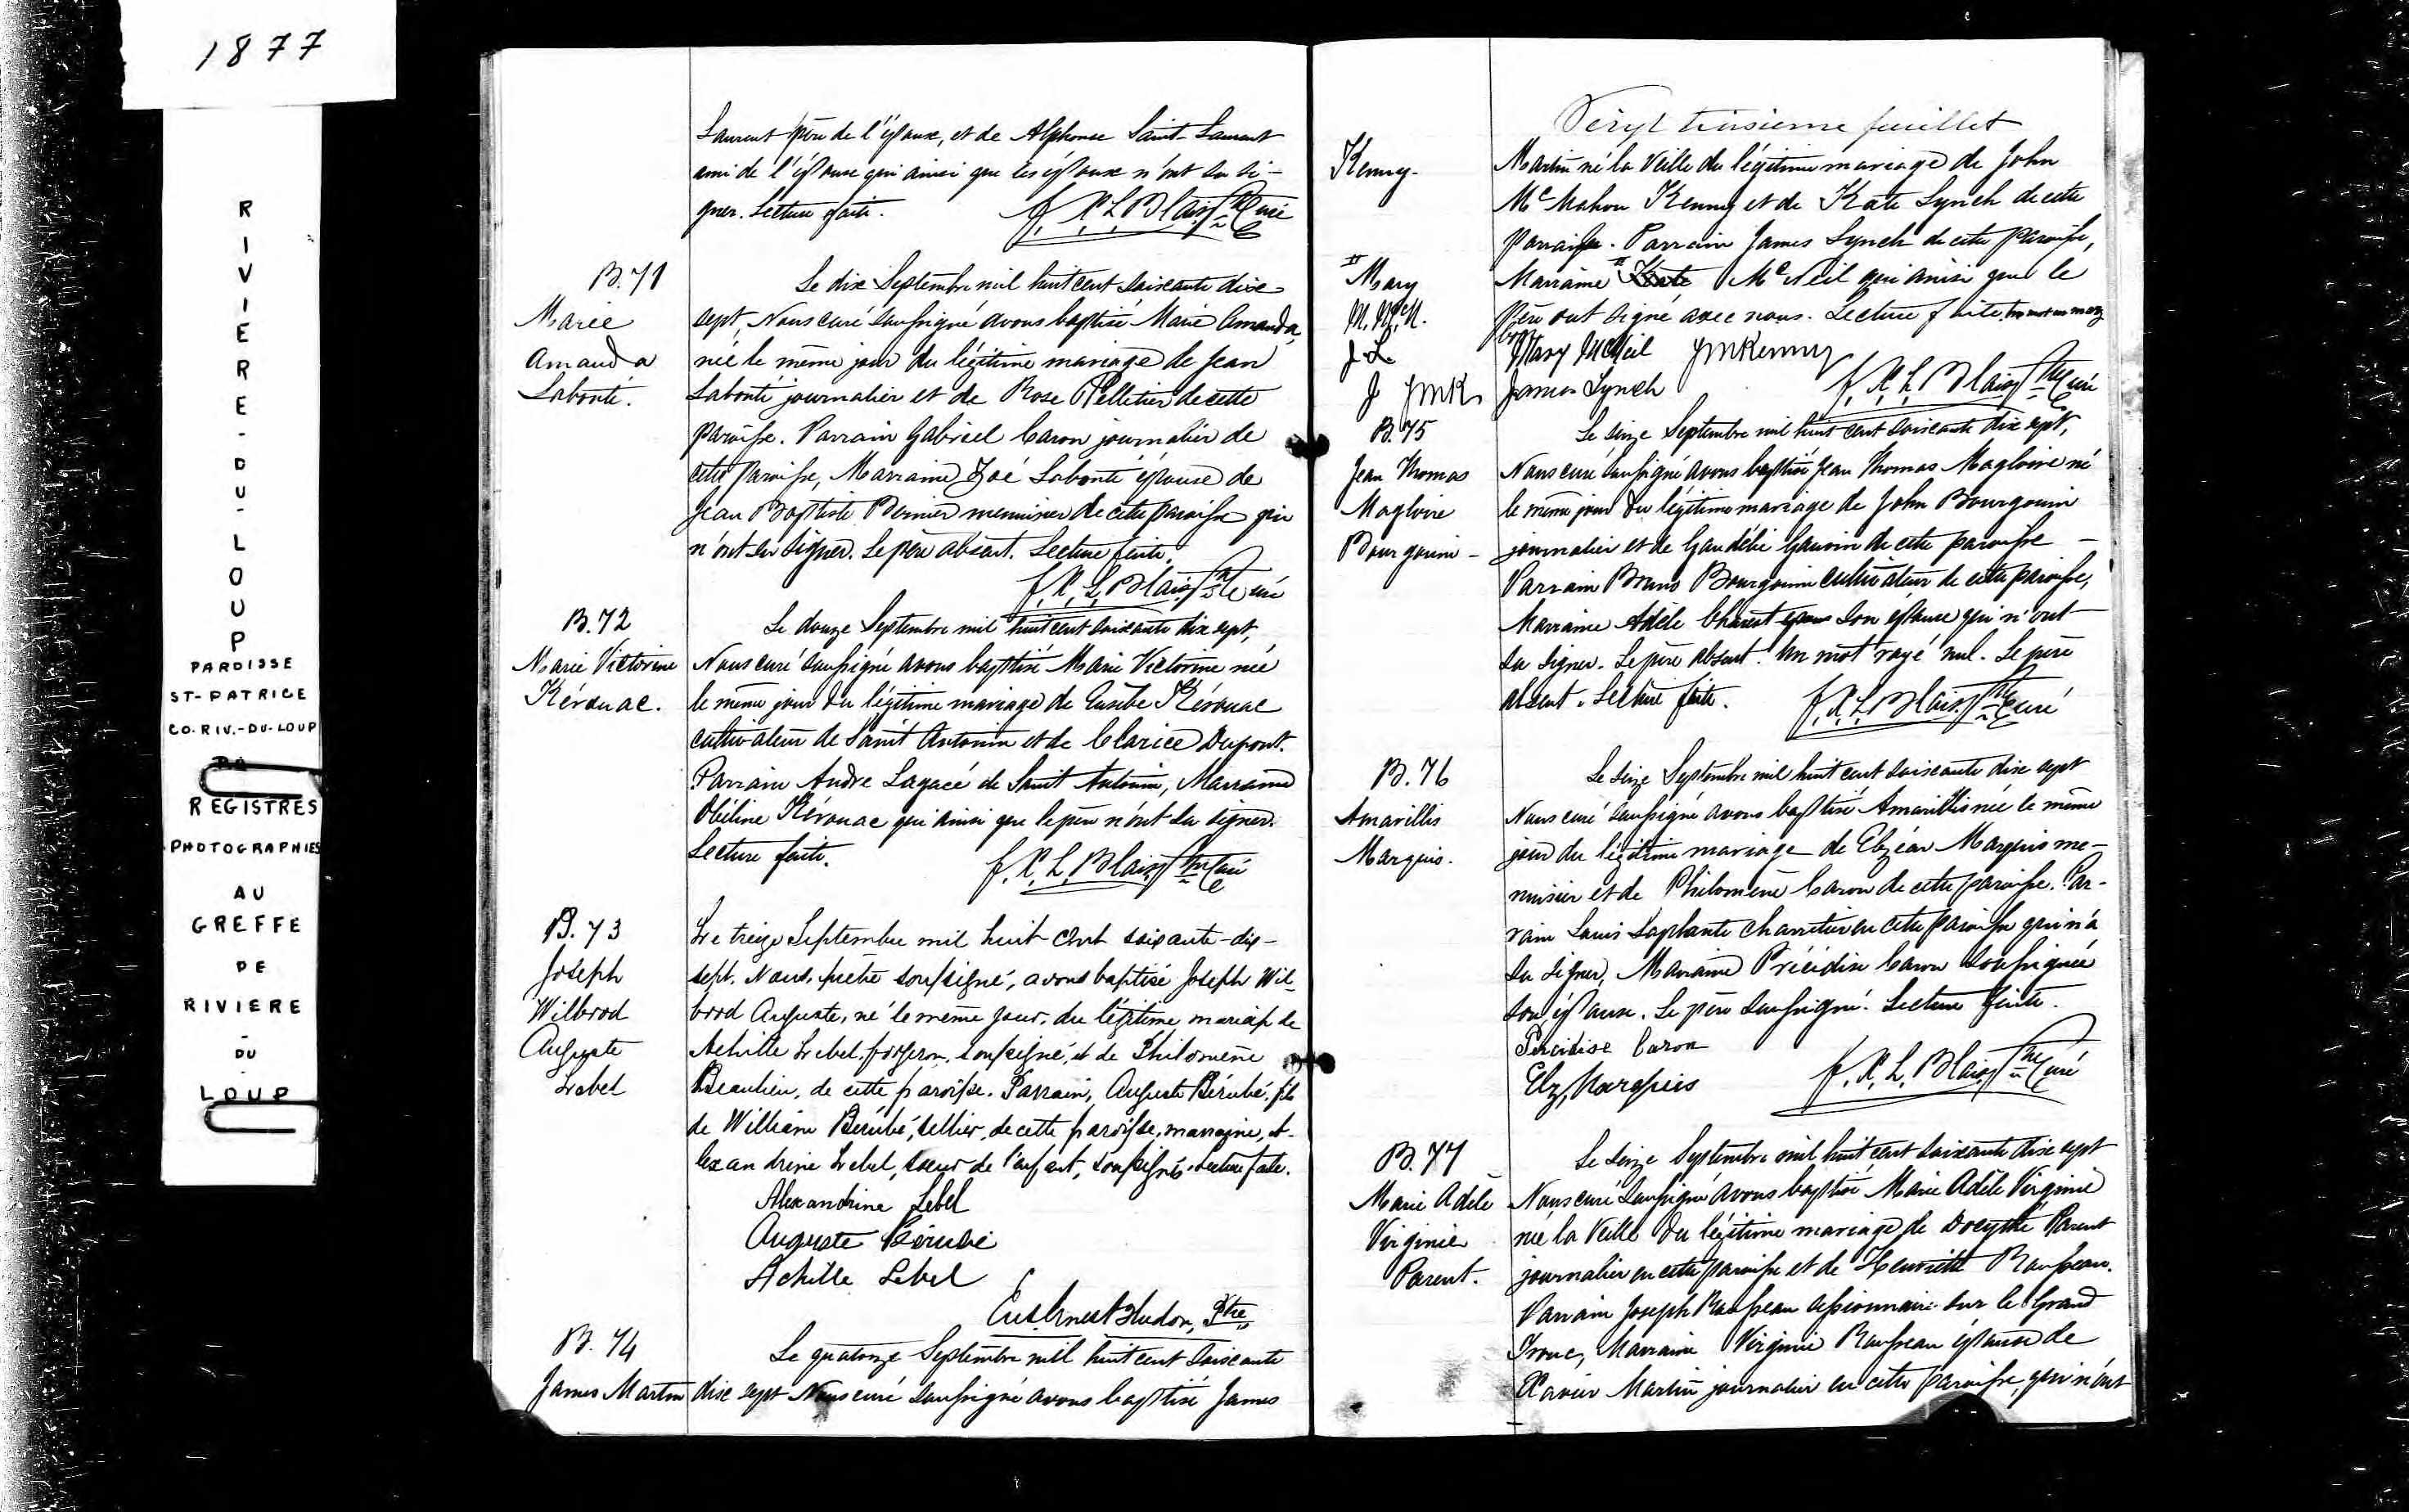 1877
RIVIERE-DU-LOUP
PAROISSE
ST-PATRICE
CO. RIV.-DU-LOUP
REGISTRES
PHOTOGRAPHIES
AU
GREFFE
DE
RIVIERE
-
DU
-
LOUP
Laurent père de l'époux, et de Alphonse Saint-Laurent
ami de l'épouse qui ainsi que les époux n'ont su si-
gner. Lecture faite. F. X. L. Blais Ptre Curé
B. 71
Marie
Amanda
Labonté.
Le dix Septembre mil huit cent soixante dix
sept, Nous curé soussigné avons baptisé Marie Amanda,
née le même jour du légitime mariage de Jean
Labonté journalier et de Rose Pelletier de cette
paroisse. Parrain Gabriel Caron journalier de
cette paroisse, Marraine Zoé Labonté épouse de
Jean Baptiste Bernier menuisier de cette paroisse qui
n'ont su signer. Le père absent. Lecture faite.
F. X. L. Blais Ptre Curé
B. 72
Marie Victorine
Kérouac.
Le douze Septembre mil huit cent soixante dix sept,
Nous curé soussigné avons baptisé Marie Victorine née
le même jour du légitime mariage de Eusèbe Kérouac
cultivateur de Saint Antonin et de Clarice Dupont.
Parrain Andre Lagacé de Saint Antonin, Marraine
Obéline Kérouac qui ainsi que le père n'ont su signer.
Lecture faite. F. X. L. Blais Ptre Curé
B. 73
Joseph
Wilbrod
Auguste
Lebel
Le treize Septembre mil huit cent soixante-dix-
sept. Nous, prêtre soussigné, avons baptisé Joseph Wil-
brod Auguste, né le même jour, du légitime mariage de
Achille Lebel, forgeron, soussigné, et de Philomène
Beaulieu, de cette paroisse. Parrain, Auguste Bérubé, fils
de William Bérubé, sellier, de cette paroisse, marraine, A-
lexandrine Lebel, soeur de l'enfant, soussignés. Lecture faite.
Alexandrine Lebel
Auguste Bérubé
Achille Lebel
Ernest Hudon, Ptre
B. 74
James Martin
Le quatorze Septembre mil huit cent soixante
dix sept Nous curé soussigné avons baptisé James
Vingt troisieme feuillet
Kenny-
Martin né la veille du légitime mariage de John
McMahon Kenny et de Kate Lynch de cette
paroisse. Parrain James Lynch de cette paroisse,
Marraine Kate McNeil qui ainsi que le
père ont signé avec nous. Lecture faite. Un mot en marg
Mary
M. McN.
J. L.
J JMK
Mary McNeil JMKenny
James Lynch F. X. L. Blais Ptre Curé
B. 75
Jean Thomas
Magloire
Bourgouin-
Le seize Septembre mil huit cent soixante dix sept,
Nous curé soussigné avons baptisé Jean Thomas Magloire né
le même jour du légitime mariage de John Bourgouin
journalier et de Gaudélie Gauvin de cette paroisse -
Parrain Bruno Bourgouin cultivateur de cette paroisse,
Marraine Adèle son épouse qui n'ont
su signer. Le père absent. Un mot rayé nul. Le père
absent. Lecture faite. F. X. L. Blais Ptre Curé
B. 76
Amarillis
Marquis.
Le seize Septembre mil huit cent soixante dix sept
Nous curé soussigné avons baptisé Amarillis née le même
jour du légitime mariage de Elzéar Marquis me-
nuisier et de Philomène Caron de cette paroisse. Par-
rain Louis Laplante charretier en cette paroisse qui n'a
su signer, Marraine Précidise Caron soussignée
son épouse. Le père soussigné. Lecture faite.
Précidise Caron
Elz, Marquis F. X. L. Blais Ptre Curé
B. 77
Marie Adèle
Virginie
Parent.
Le seize Septembre mil huit cent soixante dix sept
Nous curé soussigné avons baptisé Marie Adèle Virginie
née la veille du légitime mariage de Docythé Parent
journalier en cette paroisse et de Henriette Rousseau.
Parrain Joseph Rousseau sessionnaire sur le Grand
Tronc, Marraine Virginie Rousseau épouse de
Xavier Martin journalier en cette paroisse, qui n'ont